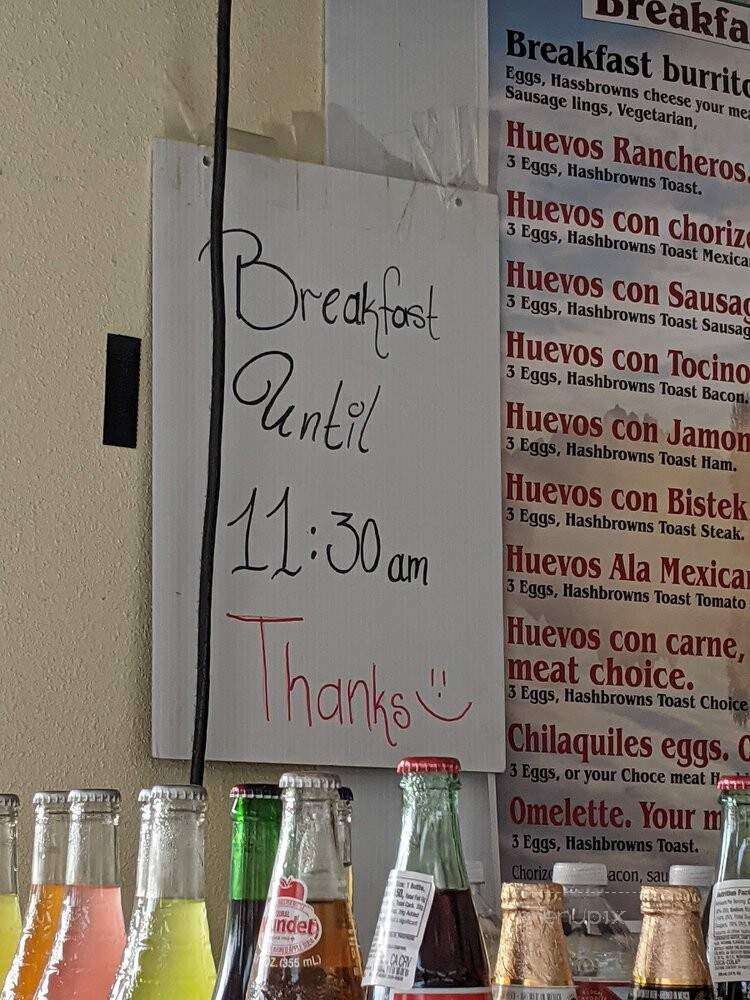 Breakfast
Until
11:30 am
Thanks
Breakfa
Breakfast burrito
Eggs, Hassbrowns cheese your mea
Sausage lings, Vegetarian,
Huevos Rancheros.
3 Eggs, Hashbrowns Toast.
Huevos con chorizo
3 Eggs, Hashbrowns Toast Mexica
Huevos con Sausag
3 Eggs, Hashbrowns Toast Sausag
Huevos con Tocino
3 Eggs, Hashbrowns Toast Bacon.
Huevos con Jamon
3 Eggs, Hashbrowns Toast Ham.
Huevos con Bistek
3 Eggs, Hashbrowns Toast Steak.
Huevos Ala Mexica
3 Eggs, Hashbrowns Toast Tomato
Huevos con carne,
meat choice.
3 Eggs, Hashbrowns Toast Choice
Chilaquiles eggs. O
3 Eggs, or your Choce meat H
Omelette. Your m
3 Eggs, Hashbrowns Toast.
Chorizo, acon, sau
undet
OZ. (355 mL)
CA CRV